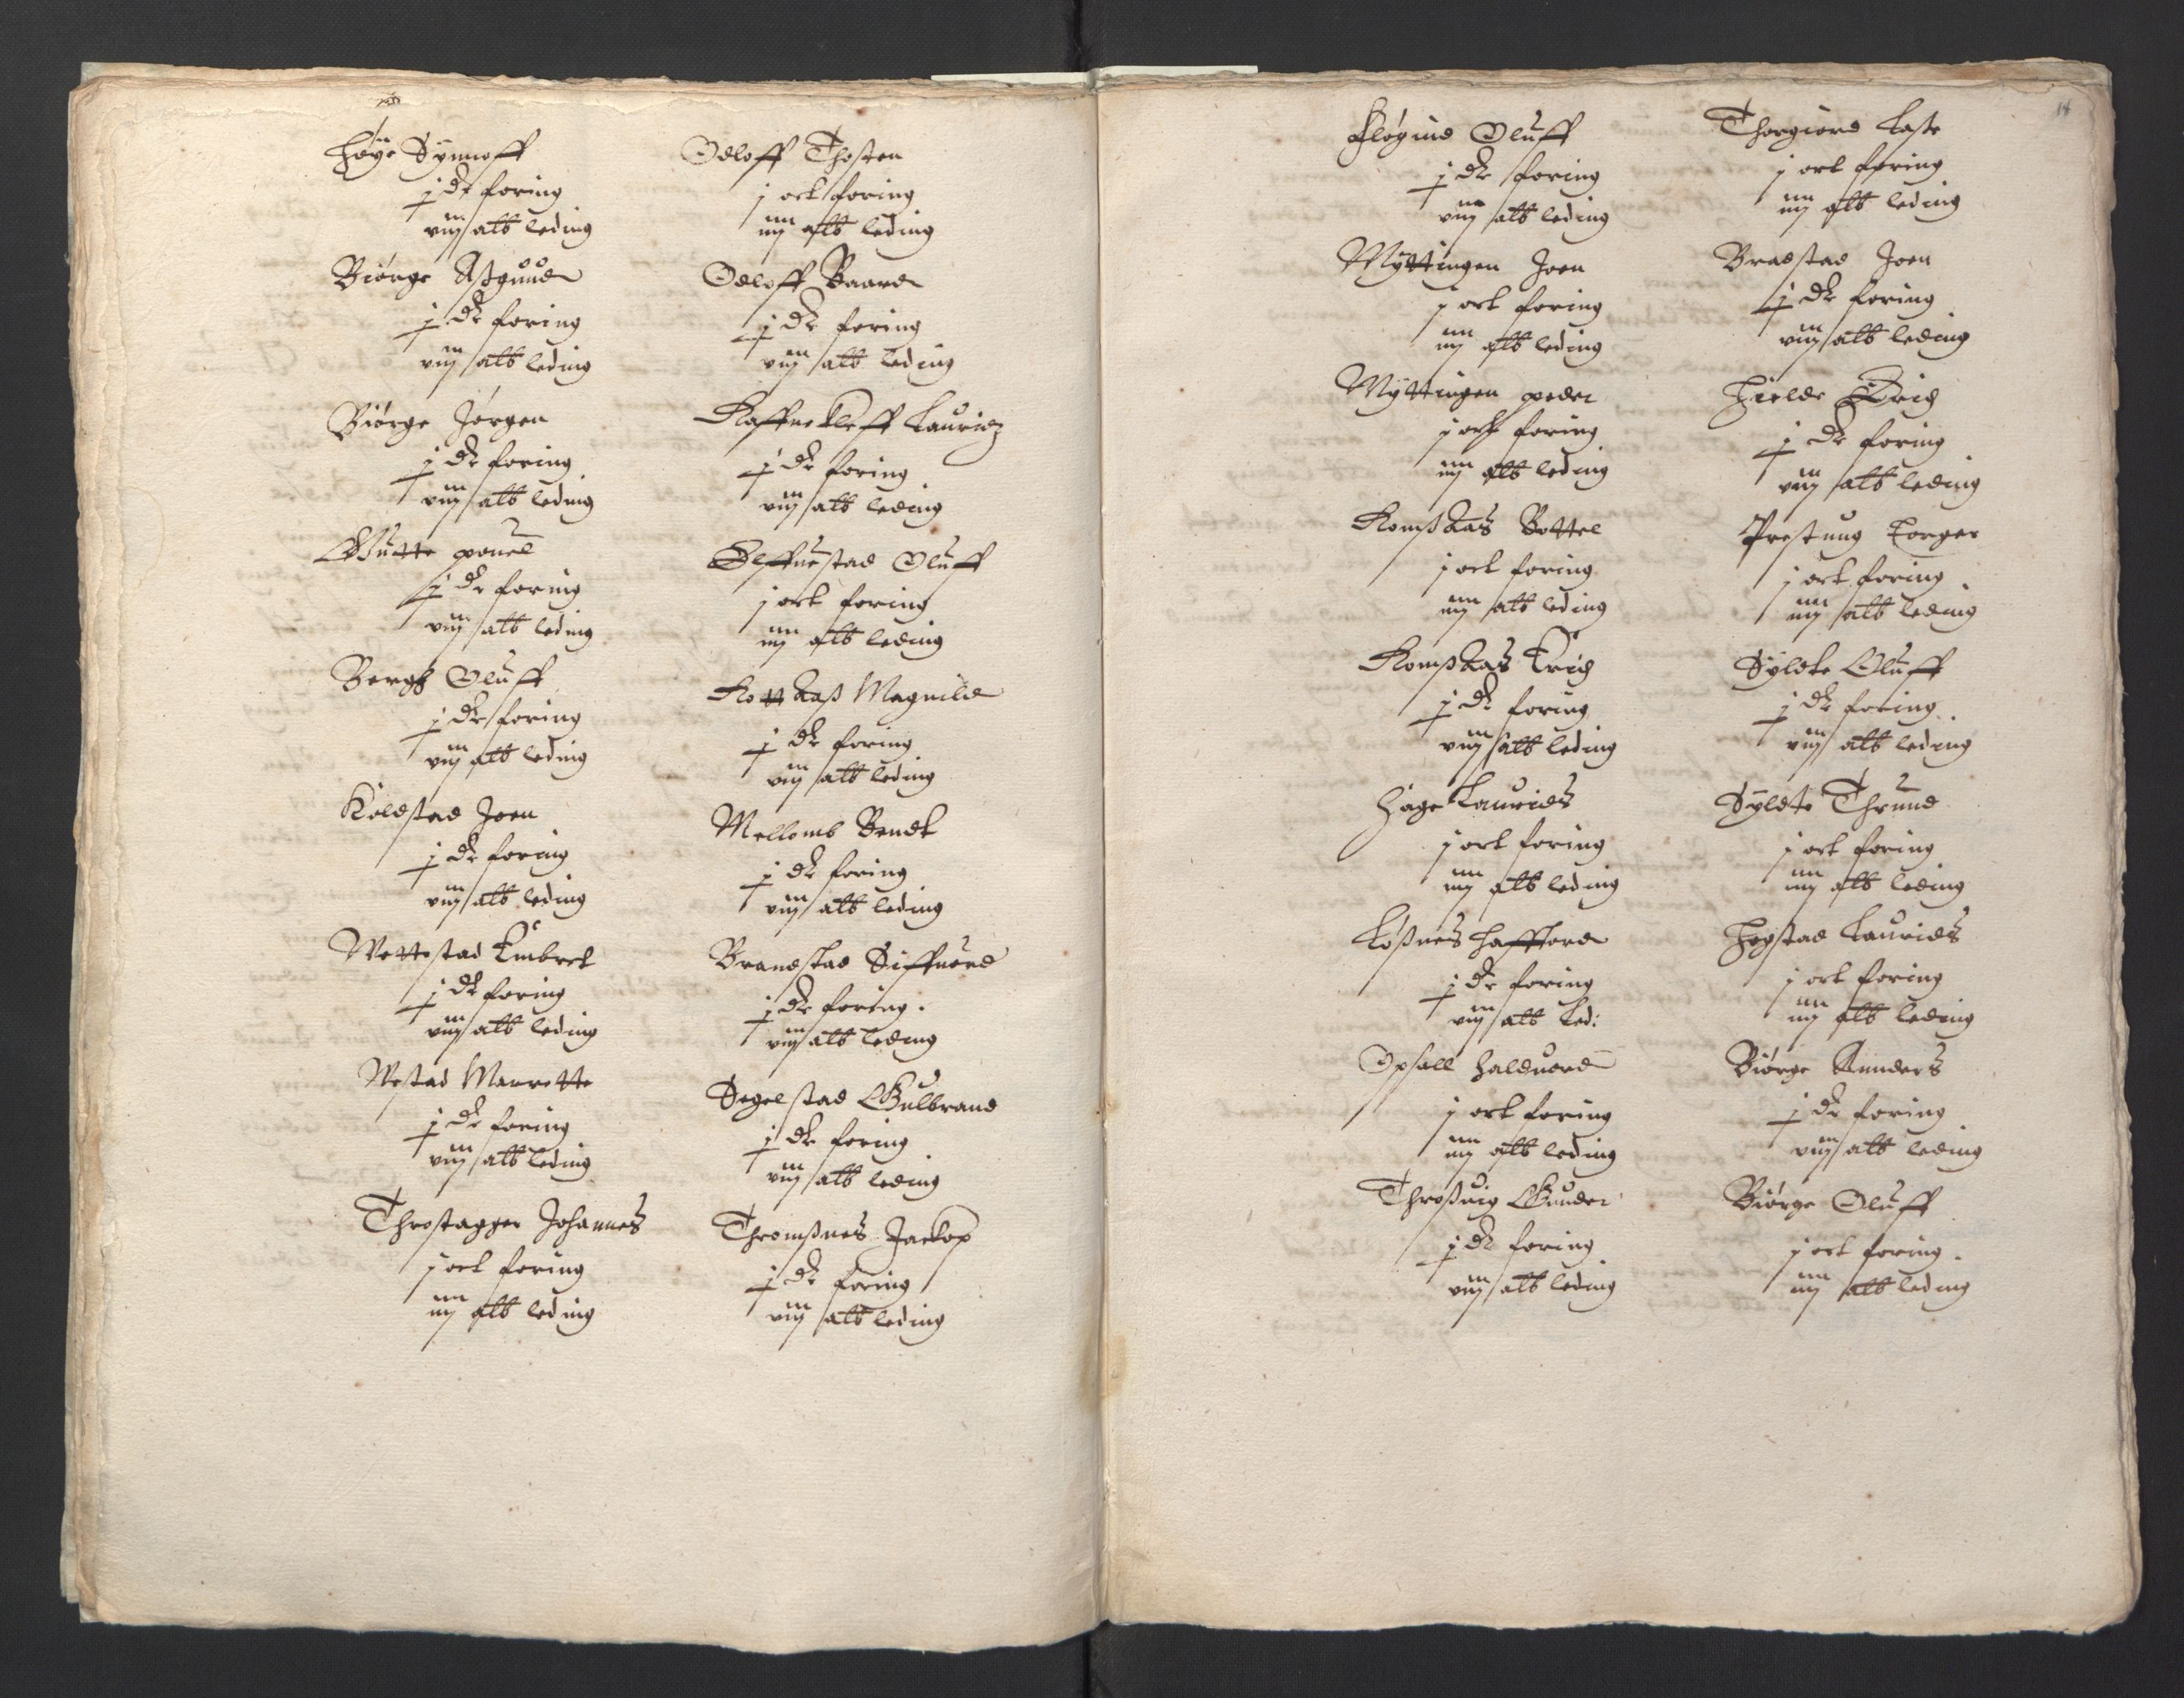 Høye Synnoff
j dr foring
viij alb leding
Biørge Aßguud
j dr foring
viij alb leding
Biørge Jørgen
j dr foring
viij alb leding
Gutte pouel
j dr foring
viij alb leding
Bergh Oluff
j dr foring
viij alb leding
Koldstad Joen
j dr foring
viij alb leding
Wettestad Embret
j dr foring
viij alb leding
Westad Maritte
j dr foring
viij alb leding
Throstagger Johannes
j ort foring
iiij alb leding
Odloff Thosten
j ort foring
iiij alb leding
Odloff Baard
j dr foring
viij alb leding
Raffnekleff Lauridz
j dr foring
viij alb leding
Elffuestad Oluff
j ort foring
iiij alb leding
Rottkaß Magnild
j dr foring
viij alb leding
Mellomb Bendt
j dr foring
viij alb leding
Brandstad Siffuord
j dr foring
viij alb leding
Segelstad Gulbrand
j dr foring
viij alb leding
Thromßnes Jackop
j dr foring
viij alb leding
14
Fløgind Oluff
j dr foring
viij alb leding
Myttingen Joen
j ort foring
iiij alb leding
Myttingen peder
j ort foring
iiij alb leding
Romßkas Bottel
j ort foring
iiij alb leding
Romßkas Erich
j dr foring
viij alb leding
Hage Laurids
j ort foring
iiij alb leding
Loßnes Haffford
j dr foring
viij alb led:
Opsall Halduord
j ort foring
iiij alb leding
Throßuig Gunder
j dr foring
viij alb leding
Thorgiord Laste
j ort foring
iiij alb leding
Bradstad Joen
j dr foring
viij alb leding
Hielde Erich
j dr foring
viij alb leding
Prestung Torger
j ort foring
iiij alb leding
Syldte Oluff
j dr foring
viij alb leding
Syldte Thrund
j ort foring
iiij alb leding
Hogstad Laurids
j ort foring
iiij alb leding
Biørge Anders
j dr foring
viij alb leding
Biørge Oluff
j ort foring
iiij alb leding